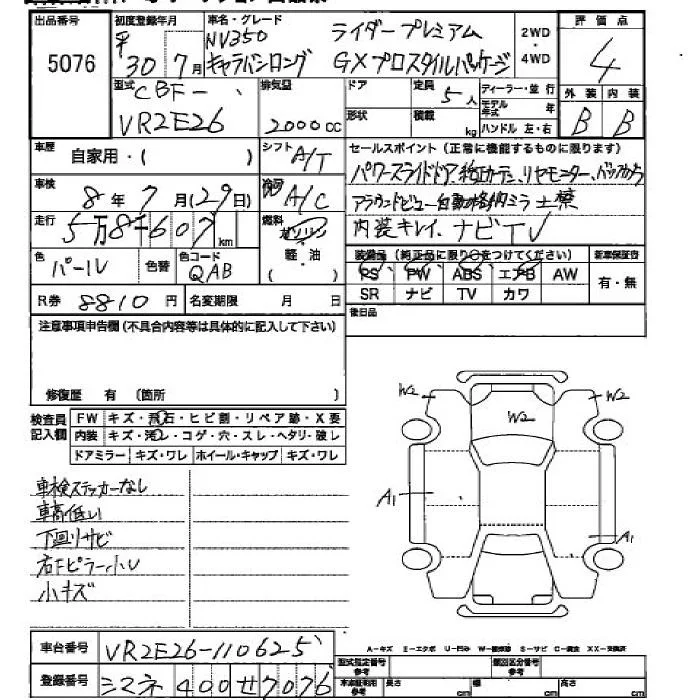 出品番号 初度登録年月 車名・グレード 2WD・4WD 評価点
5076 平30年7月 NV350 キャラバンロング ライダープレミアム GXプロスタイルパッケージ 4
型式 CBF- VR2E26 排気量 2000cc ドア 形状 定員 5人 積載 kg ディーラー・並行 モデル年式 年 ハンドル 左・右 外装 B 内装 B
車歴 自家用・( ) シフト A/T
セールスポイント(正常に機能するものに限ります)
パワースライドドア、純正カーテン、リヤモニター、バックカメラ
アラウンドビュー 自動格納ミラー 禁煙
内装キレイ、ナビTV
車検 8年7月(29日) 冷房 A/C
走行 5万8千607km 燃料 ガソリン 軽・油 ( )
色 パール 色替 色コード QAB
R券 8810円 名変期限 月 日
装備品(純正品に限り○をつけてください) 新車保証書
PS PW ABS エアB AW 有・無
SR ナビ TV カワ
後日品
注意事項申告欄(不具合内容等は具体的に記入して下さい)
修復歴 有 (箇所 )
検査員記入欄 FW キズ・飛石・ヒビ割・リペア跡・X要
内装 キズ・汚レ・コゲ・穴・スレ・ヘタリ・破レ
ドアミラー キズ・ワレ ホイール・キャップ キズ・ワレ
車検ステッカーなし
車高低い
下回りサビ
右Fピラー小U
小キズ
W2 W2 W2
A1 A1
A-キズ E-エクボ U-凹み W-補修跡 S-サビ C-腐食 XX-交換済
車台番号 VR2E26-110625
登録番号 シマネ 400 せ 7076
型式指定番号 参考 類別区分番号 参考
車体寸法 参考 長さ cm 幅 cm 高さ cm